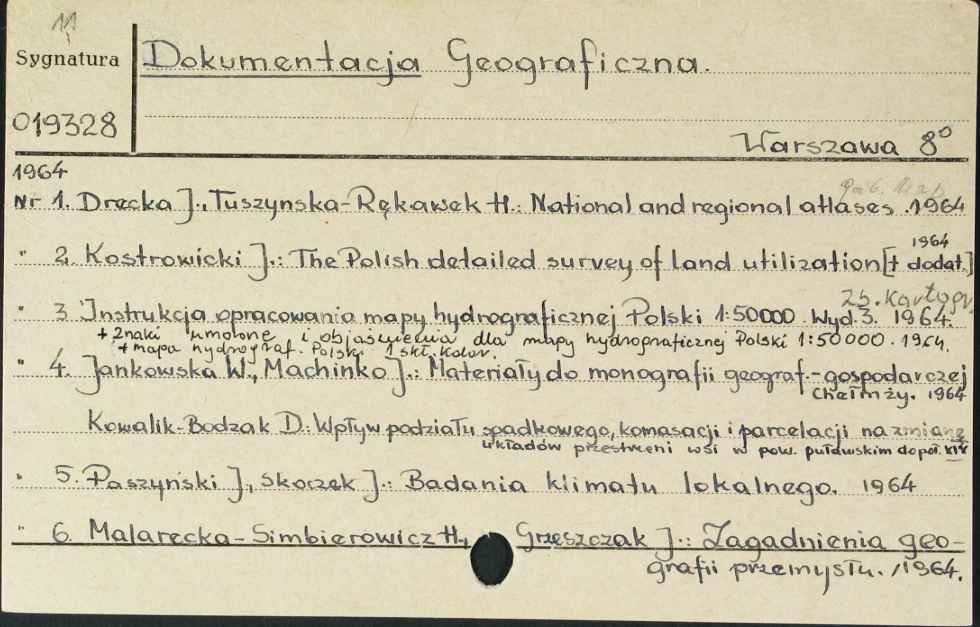 11
Sygnatura
Dokumentacja Geograficzna.
019328
Warszawa 8°
1964
Nr 1. Drecka J., Tuszynska-Rękawek H.: National and regional atlases. 1964
" 2. Kostrowicki J.: The Polish detailed survey of land utilization [+ dodat.] 1964
25. Kartogr.
" 3 Instrukcja opracowania mapy hydrograficznej Polski 1:50000 Wyd. 3. 1964.
+ Znaki umolone i objaśnienia dla mapy hydrograficznej Polski 1:50 000. 1964.
+ mapa hydrograf. Polski 1 skł. kolor.
" 4. Jankowska W., Machinko J.: Materiały do monografii geograf.-gospodarczej
Chełmży. 1964
Kowalik-Bodzak D: Wpływ podziału spadkowego, komasacji i parcelacji na zmianę
układów przestrzeni wsi w pow. puławskim do poł. XIX
" 5. Paszyński J., Skoczek J.: Badania klimatu lokalnego. 1964
" 6. Malarecka-Simbierowicz H., Grzeszczak J.: Zagadnienia geo-
grafii przemysłu. 1964.